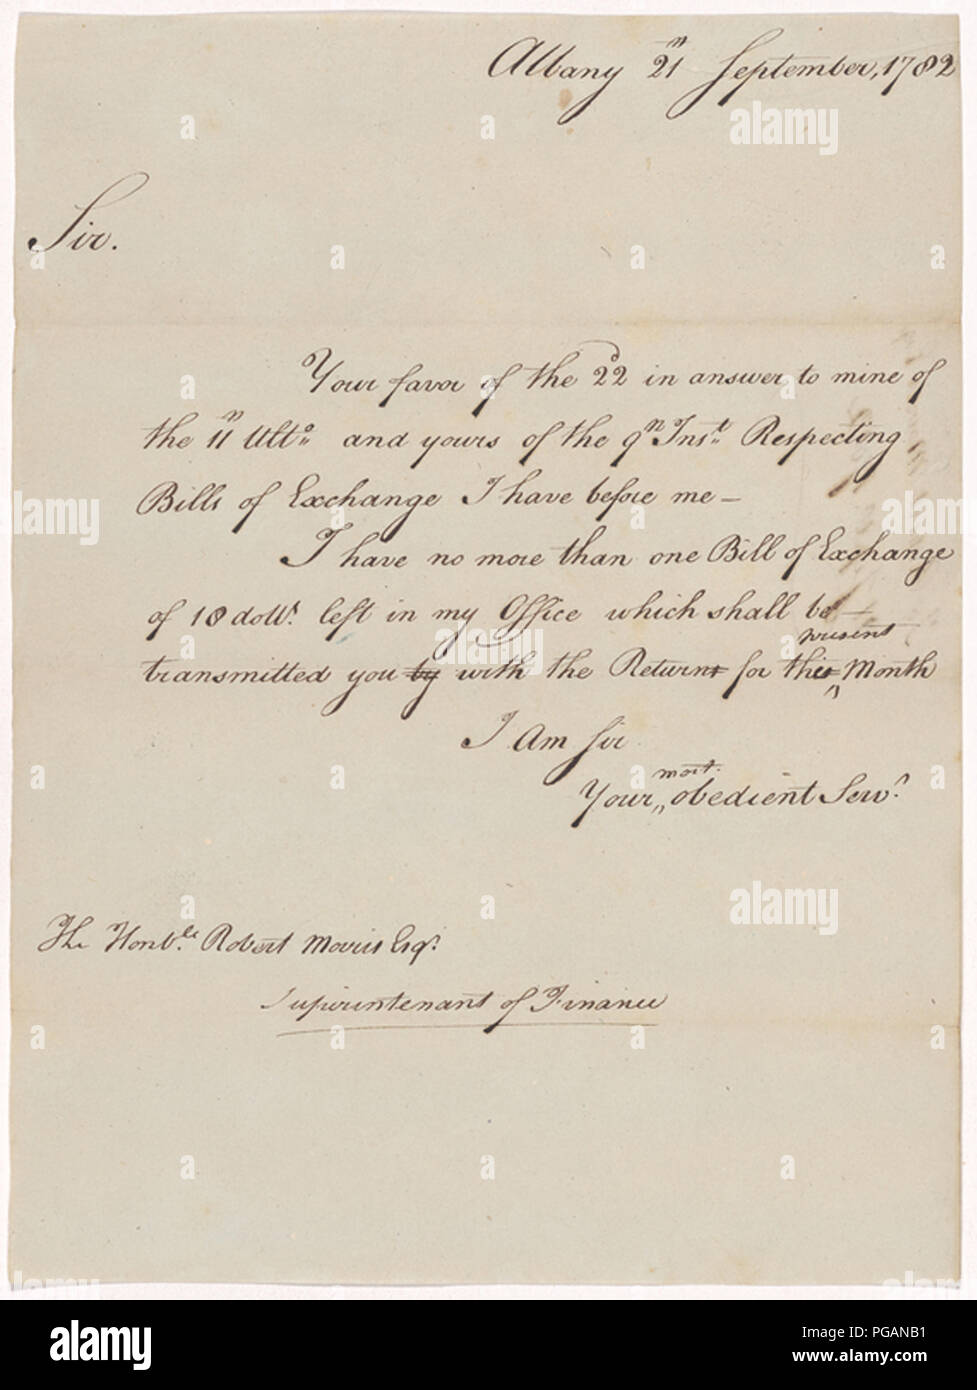 Albany 21n September, 1782
Sir.
Your favor of the 22d in answer to mine of
the 11n Ulto and yours of the 9n Inst Respecting
Bills of Exchange I have before me —
I have no more than one Bill of Exchange
of 18 dolls. left in my Office which shall be —
present
transmitted you by with the Returns for this Month
I Am Sir
most
Your obedient Serv.t
The Honble Robert Morris Esqr.
Superintendant of Finance
alamy
alamy
alamy
Image ID: PGANB1
www.alamy.com